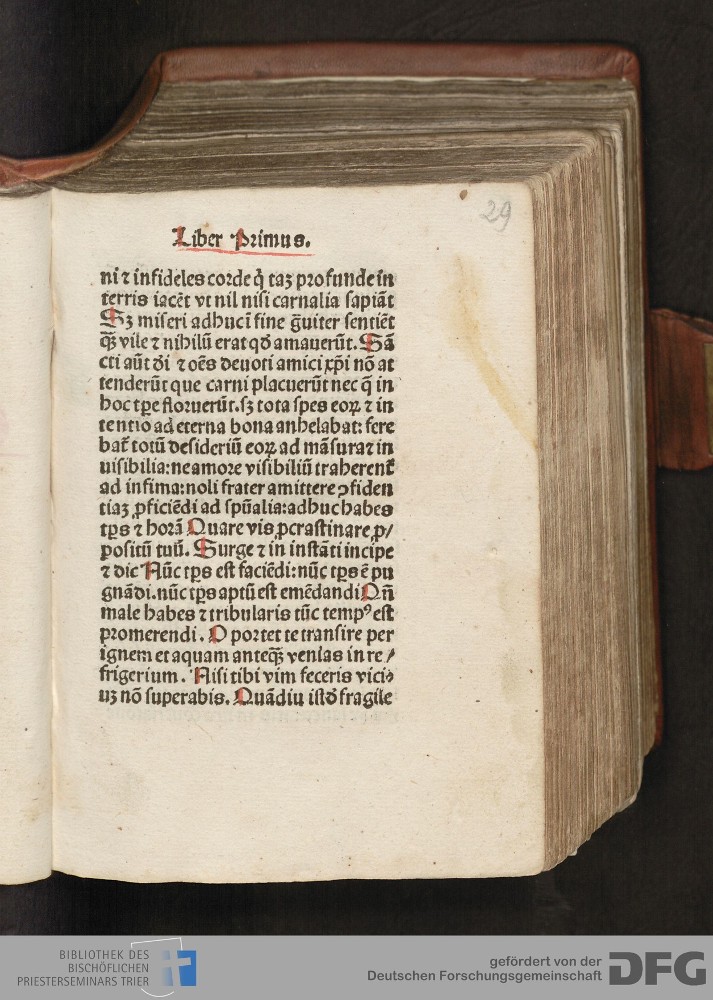 29
Liber Primus.
ni ⁊ infideles corde q̇ taꝫ profunde in
terris iacēt vt nil nisi carnalia sapiāt
Sꝫ miseri adhuc ī fine g̃uiter sentiēt
q̄ꝫ vile ⁊ nihilū erat qď amauerūt. Sā
cti aūt ďi ⁊ oēs deuoti amici xp̄i nō at
tenderūt que carni placuerūt nec q̄ in
hoc tꝑe floruerūt. sꝫ tota spes eoꝝ ⁊ in
tentio ad eterna bona anhelabat: fere
bat᷑ totū desideriū eoꝝ ad māsura ⁊ in
uisibilia: ne amore visibiliū traherent᷑
ad infima: noli frater amittere ꝯfiden
tiaꝫ ꝓficiēdi ad spūalia: adhuc habes
tp̄s ⁊ horā Quare vis ꝓcrastinare ꝓ/
positū tuū. Surge ⁊ in instāti incipe
⁊ dic Nūc tp̄s est faciēdi: nūc tp̄s ē pu
gnādi. nūc tp̄s aptū est emēdandi Qñ
male habes ⁊ tribularis tūc tempꝰ est
promerendi. Oportet te transire per
ignem et aquam anteq̄ꝫ venias in re/
frigerium. Nisi tibi vim feceris vici⸗
uꝫ nō superabis. Quādiu istď fragile
BIBLIOTHEK DES
BISCHÖFLICHEN
PRIESTERSEMINARS TRIER
gefördert von der
Deutschen Forschungsgemeinschaft
DFG